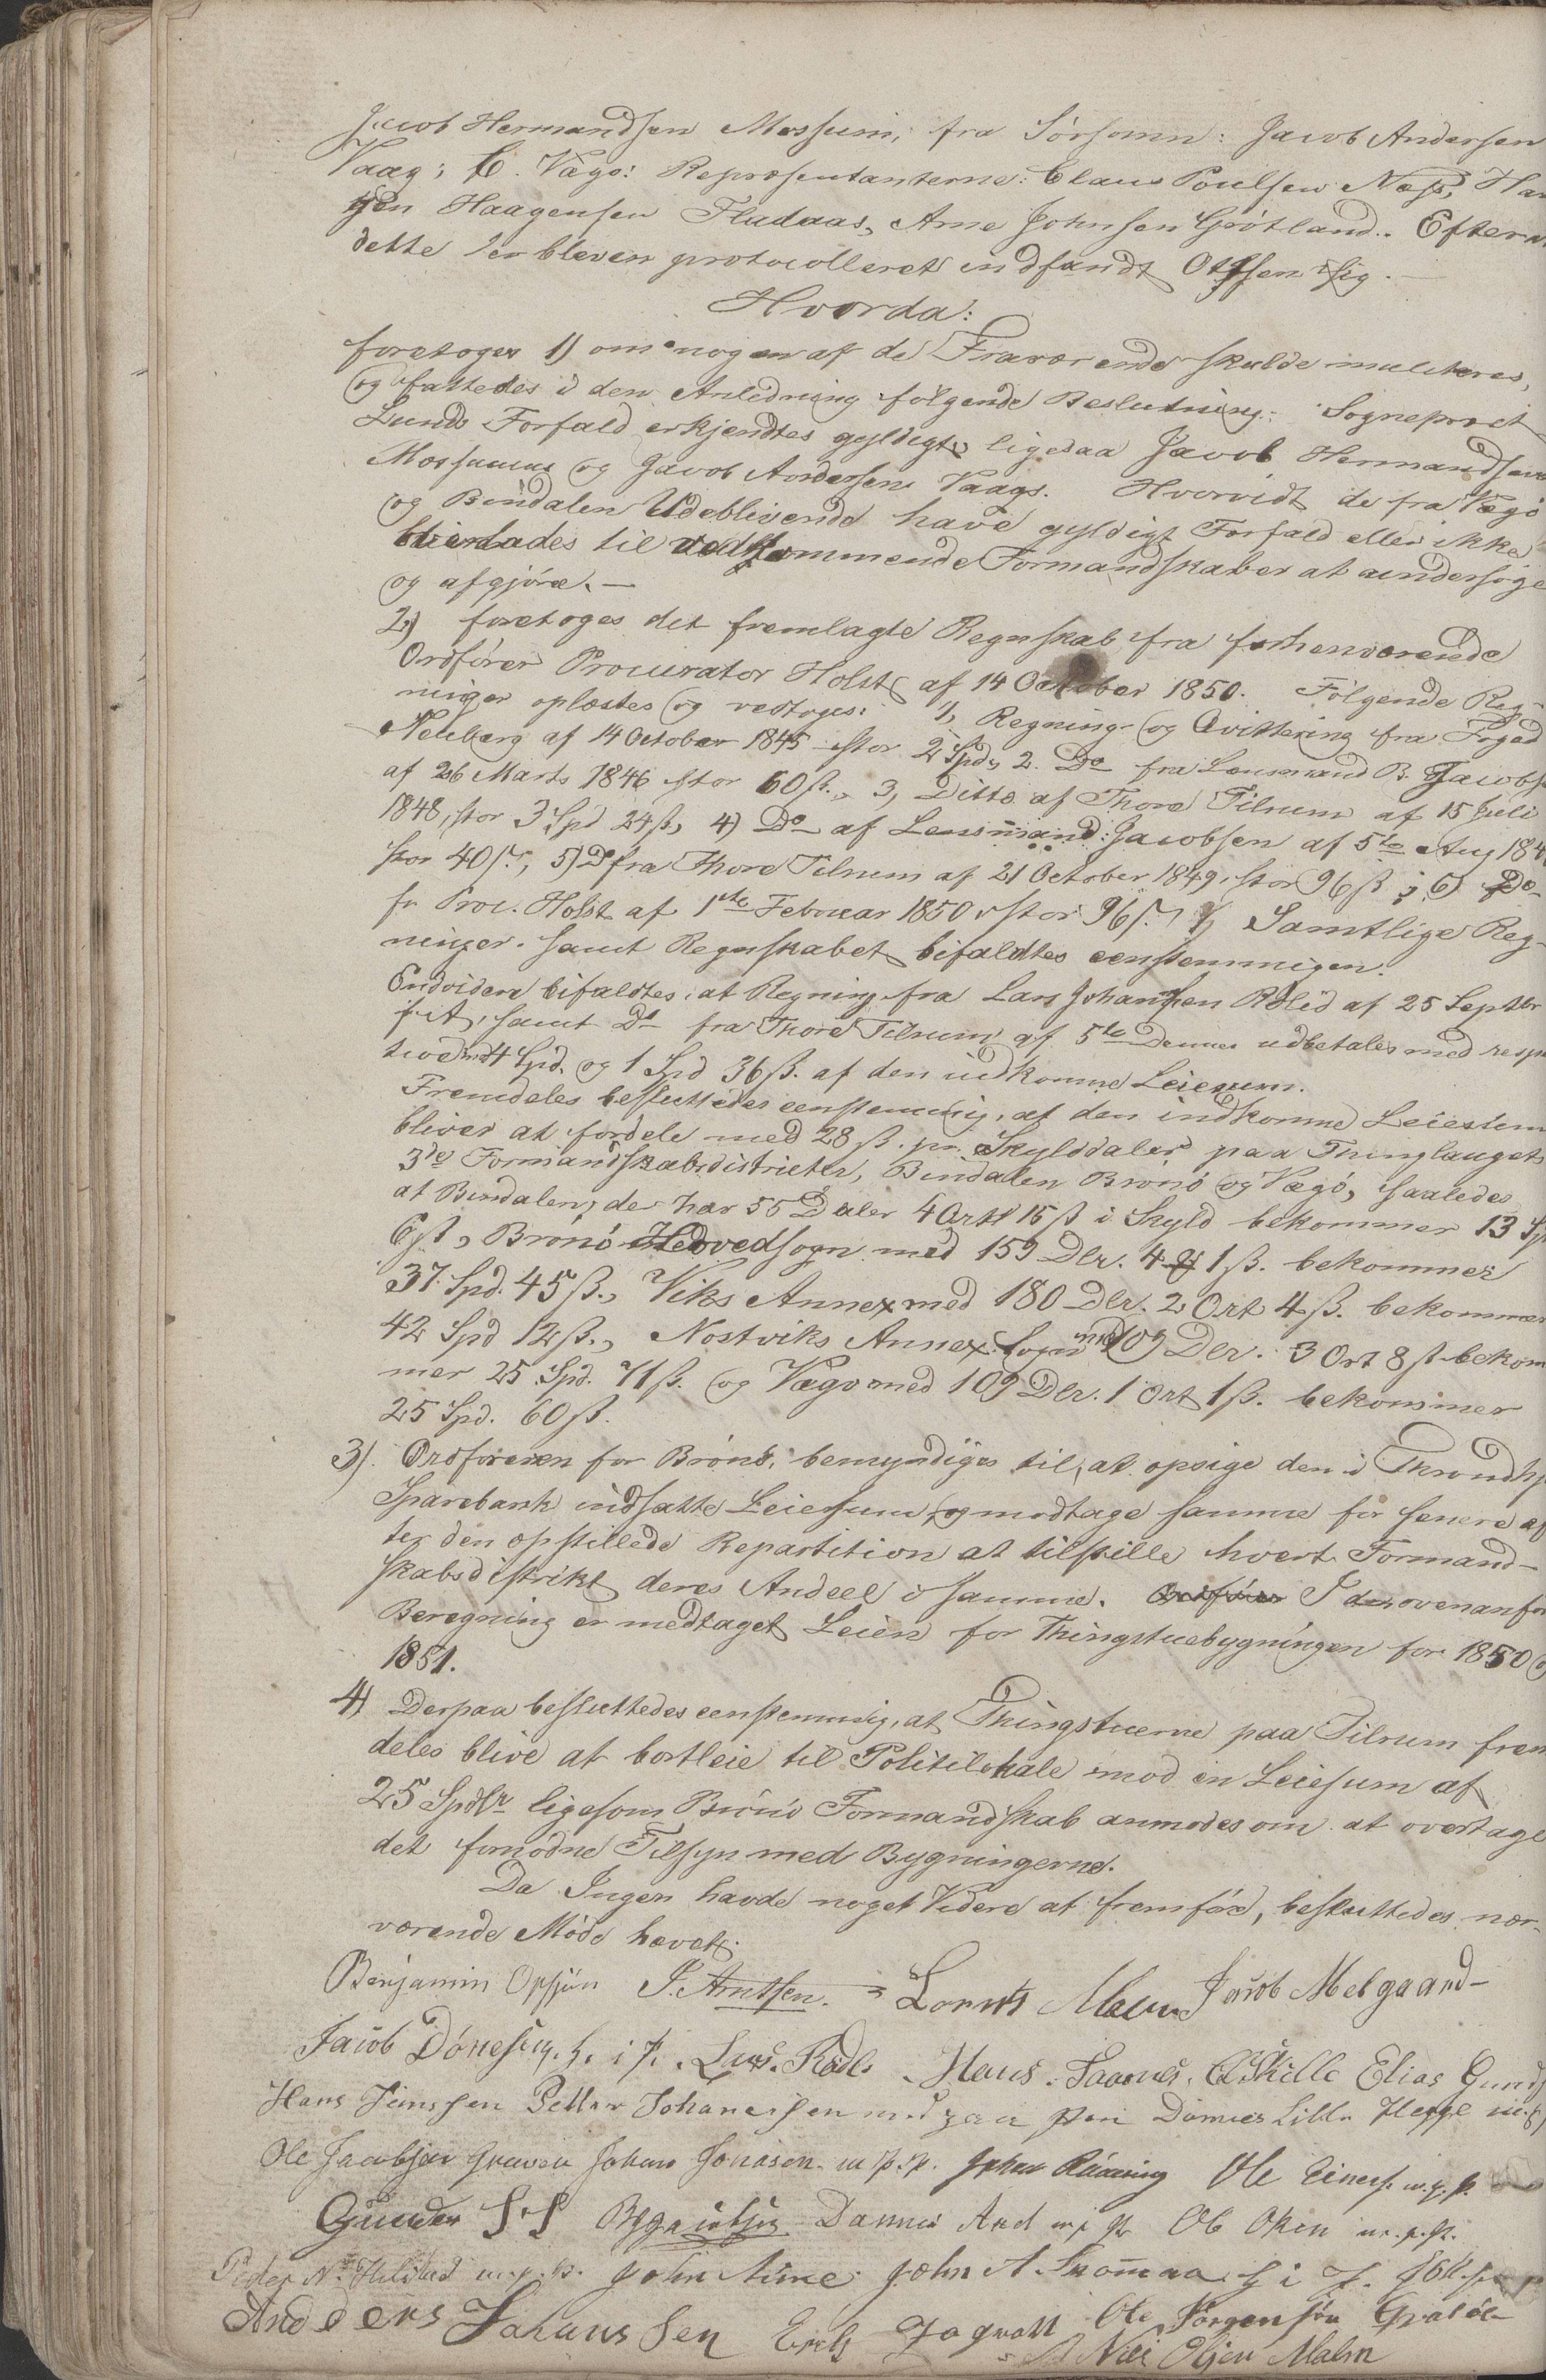 Jacob Hermandsen Mosheim, fra Sörsomn: Jacob Andersen
Vaag; C. Vægö: Repræsentanterne: Claus Poulsen Næss, Han
Haagensen Fludaas, Arne Johnsen Grötland. Efterat
dette er bleven protocolleret indfandt Ottsen sig.
Hvorda:
foretoges 1) om nogen af de Fraværende skulde mulcteres,
og fattedes i den Anledning følgende Beslutning: Sogneprest
Lunds Forfald erkjendtes gyldigt, ligesaa Jacob Hermandsens
og Jacob Andersens Vaags. Hvorvidt de fra Vægö
og Bindalen Udeblivende have gyldigt Forfald eller ikke
til vedkommende Formandskaber at undersöge
og afgjöre.
2) foretoges det fremlagte Regnskab fra forhenværende
Ordförer Procurator Holst af 14 October 1850. Fölgende Reg-
ninger oplæstes og vedtoges: 1, Regning og Qvittering fra Foged
Neuberg af 14 October 1845 stor 2 Spd, 2. Do fra Lensmand B. Jacobs
af 26 Marts 1846 stor 60 ß., 3, Ditto af Thore Tilrum af 15 Juli
1848, stor 3 Spd 24 ß, 4) Do af Lensmand Jacobsen af 5te Aug 184
stor 40 ß, 5) Do fra Thore Tilrum af 21 October 1849, stor 96 ß; 6) Do
fr Proc. Holst af 1ste Februar 1850 stor 96 ß. Samtlige Reg-
ninger samt Regnskabet bifaldtes eenstemmigen.
Endvidere bifaldtes, at Regning fra Lars Johansen Rölid af 25 Septbr
f. A, samt Do fra Thore Tilrum af 5te Dennes udbetales med resp
tive 4 Spd. og 1 Spd 36 ß. af den indkomne Leiesum.
Fremdeles besluttedes eenstemmig, at den indkomne Leiesum
bliver at fordele med 28 ß. pr. Skylddaler paa Thinglaugets
3de Formandskabsdistricter, Bindalen Brönö og Vægö, saaledes
at Bindalen, der har 55 Daler 4 Ort 15 ß i Skyld bekommer 13 Sp
6 ß, Brönö Hovedsogn med 159 Dlr. 4 1 ß. bekommer
37 Spd. 45 ß., Viks Annex med 180 Dlr. 2 Ort 4 ß. bekommer
42 Spd 12 ß., Nostviks Annex Sogn med 109 Dlr. 3 Ort 8 ß bekom
mer 25 Spd. 71 ß. og Vægö med 109 Dlr. 1 Ort 1 ß. bekommer
25 Spd. 60 ß.
3). Ordföreren for Brönö, bemyndiges til, at opsige den i Throndhj
Sparebank indsatte Leiesum, og modtage samme for senere ef
ter den opstillede Repartition at tilstille hvert Formand-
skabsdistrikt deres Andeel i samme. I den ovenanfor
Beregning er medtaget Leien for Thingstuebygningen for 1850 o
1851.
4) Derpaa besluttedes eenstemmig, at Thingstuerne paa Tilrum frem
deles blive at bortleie til Politilokale mod en Leiesum af
25 Spdlr ligesom Brönö Formandskab anmodes om at overtage
det fornödne Tilsyn med Bygningerne.
Da Ingen havde noget Videre at fremföre, besluttedes nær-
værende Möde hævet.
Benjamin Opsjön P. Arntsen. Lornts Jacob Melgaard
Jacob Hans Elias
Hans Jenssen Petter Johanesen med paa Pen Lille Hegge
Ole Jacobsen Johan Jonasen m. p. p. Johan Ole m. p. p.
Gunder Ole m. p. p.
Peder m. p. p. John John A
Anders Johanssen Erik Ole Jörgensön
Nils Olsen Malm